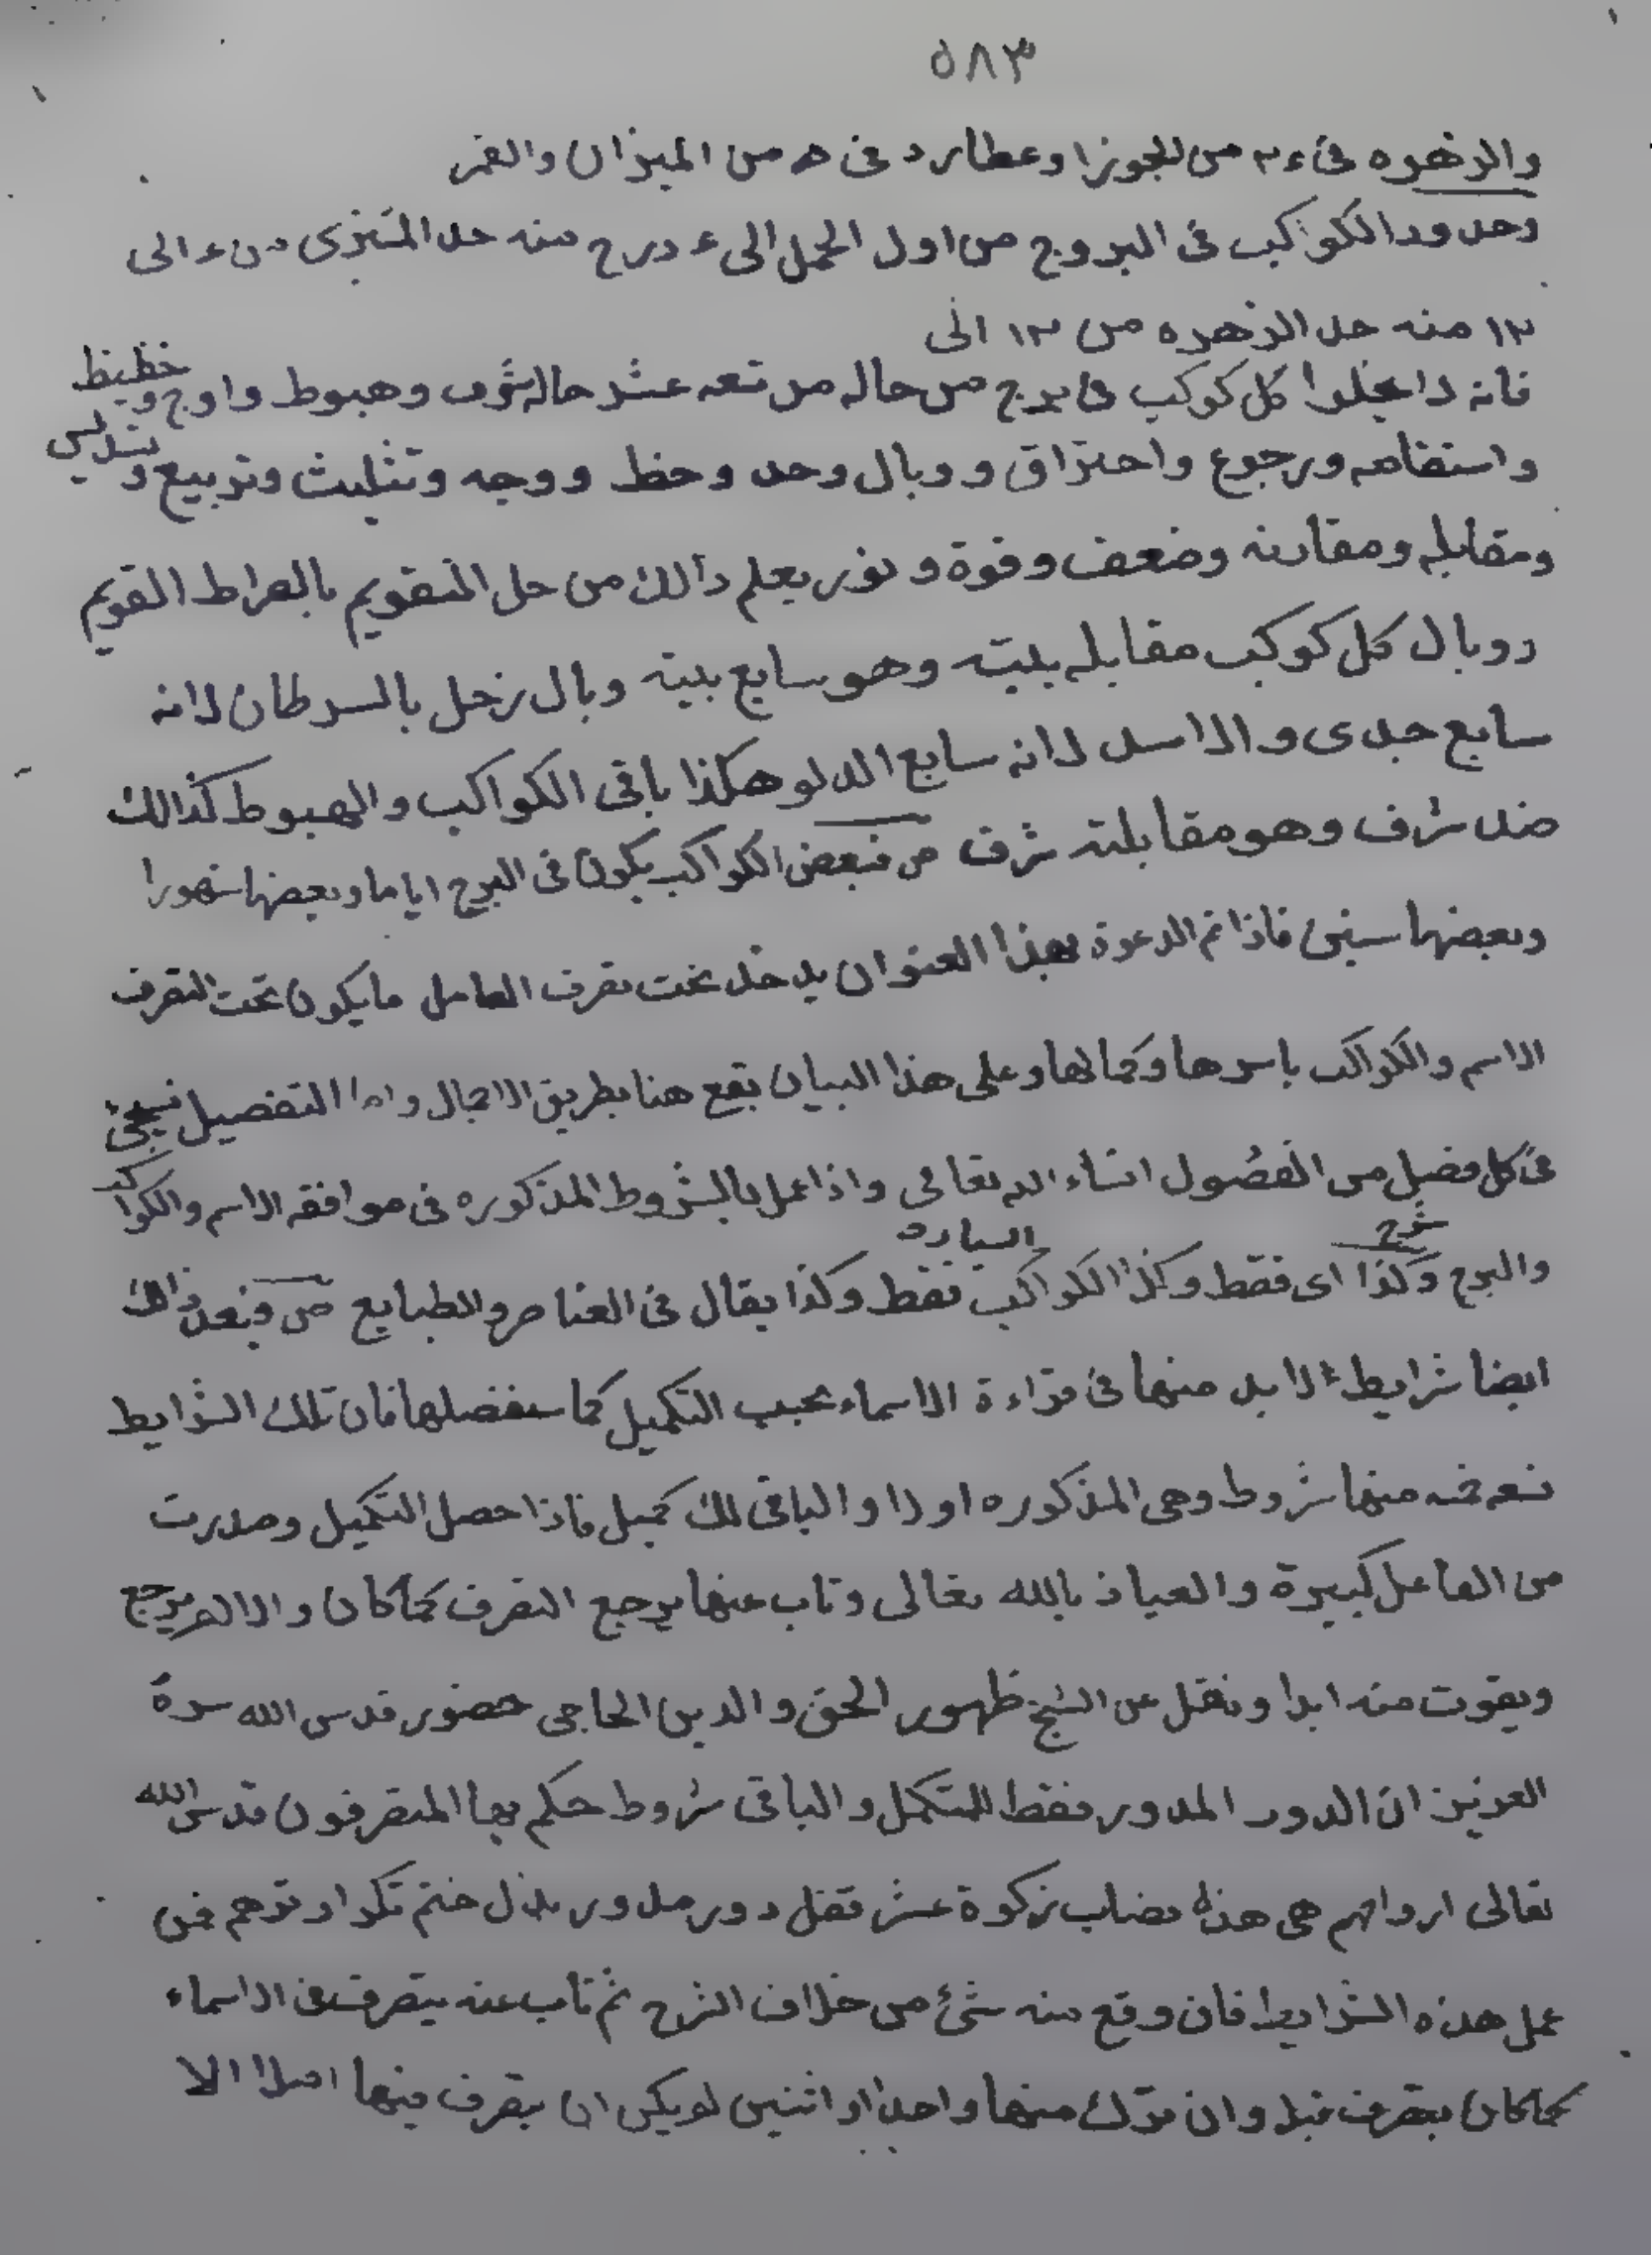 ٥٨٣
والزهره فى ٢٤ من الجوزا وعطارد فى ه من الميزان والقمر
وحدود الكواكب فى البروج من اول الحمل الى ٤ درج منه حد المشترى من ٤ الى
١٣ منه حد الزهره من ١٣ الى
فانه لا يخلوا كل كوكب فى برج من حاله من تسعه عشر حاله شرف وهبوط واوج وحظيظ
واستقامه ورجوع واحتراق ووبال وحد وحظ ووجه وتثليث وتربيع وتسديس
ومقابله ومقارنه وضعف وقوة ونور يعلم ذالك من حل التقويم بالصراط القويم
ووبال كل كوكب مقابله بيته وهو سابع بيته وبال زحل بالسرطان لانه
سابع جدى والاسد لانه سابع الدلو هكذا باقى الكواكب والهبوط كذالك
ضد شرف وهو مقابلته شرف ص فبعض الكواكب يكون فى البرج اياما وبعضها شهورا
وبعضها سنين فاذا تم الدعوة بهذا العنوان يدخل تحت تصرف العامل ما يكون تحت التصرف
الاسم والكواكب باسرها وكمالها وعلى هذا البيان يقع هنا بطريق الاجمال واما التفصيل فيجئ
فى كل فصل من الفصول انشاء الله تعالى واذا عمل بالشروط المذكوره فى موافقه الاسم والكواكب
والبرج وكذا شرح اى فقط وكذا الكواكب السياره فقط وكذا يقال فى العناصر والطبايع ص وبعد ذالك
ايضا شرايط لابد منها فى قراءة الاسماء بحسب التكميل كما سنفصلها فان تلك الشرايط
تسعه خمسه منها شروط وهى المذكوره اولا والباقى لك تكميل فاذا حصل التكميل وصدرت
من العامل كبيرة والعياذ بالله تعالى وتاب عنها يرجع التصرف كما كان والا لم يرجع
ويفوت منه ابدا ونقل عن الشيخ ظهور الحق والدين الحاجى حضور قدس الله سرهٔ
العزيز ان الدور المدور فقط للتكمل والباقى شروط حكم بها المتصرفون قدس الله
تعالى ارواحهم هى هذه نصاب زكوة عشر قفل دور مدور بذل ختم تكرار توهم فمن
عمل هذه الشرايط فان وقع منه شئ من خلاف الشرح ثم تاب عنه يتصرف فى الاسماء
كما كان يتصرف قبل وان ترك منها واحدا او اثنين لم يكن ان يتصرف فيها اصلا الا